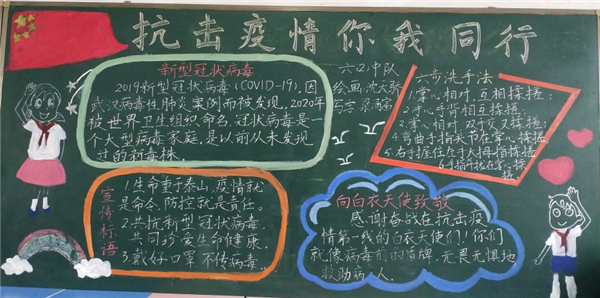 抗击疫情你我同行
新型冠状病毒
2019新型冠状病毒(COVID-19),因
武汉病毒性肺炎案例而被发现,2020年
被世界卫生组织命名,冠状病毒是一
个大型病毒家庭,是以前从未发现
过的新毒株.
六(2)中队
绘画:沈文
写字:梁
六步洗手法
1.掌心相对,互相揉搓;
2.手心手背相互揉搓;
3.掌心相对,双手交叉揉搓;
4.弯曲手指关节在掌心揉搓
5.右手握住左手大拇指揉搓
6.手指指尖在掌心揉搓
宣传标语
1.生命重于泰山,疫情就
是命令,防控就是责任。
2.共抗新型冠状病毒,
共同珍爱生命健康.
3.戴好口罩不传病毒.
向白衣天使致敬
感谢奋战在抗击疫
情第一线的白衣天使们!你们
就像病毒前的盾牌,无畏无惧地
救助病人.